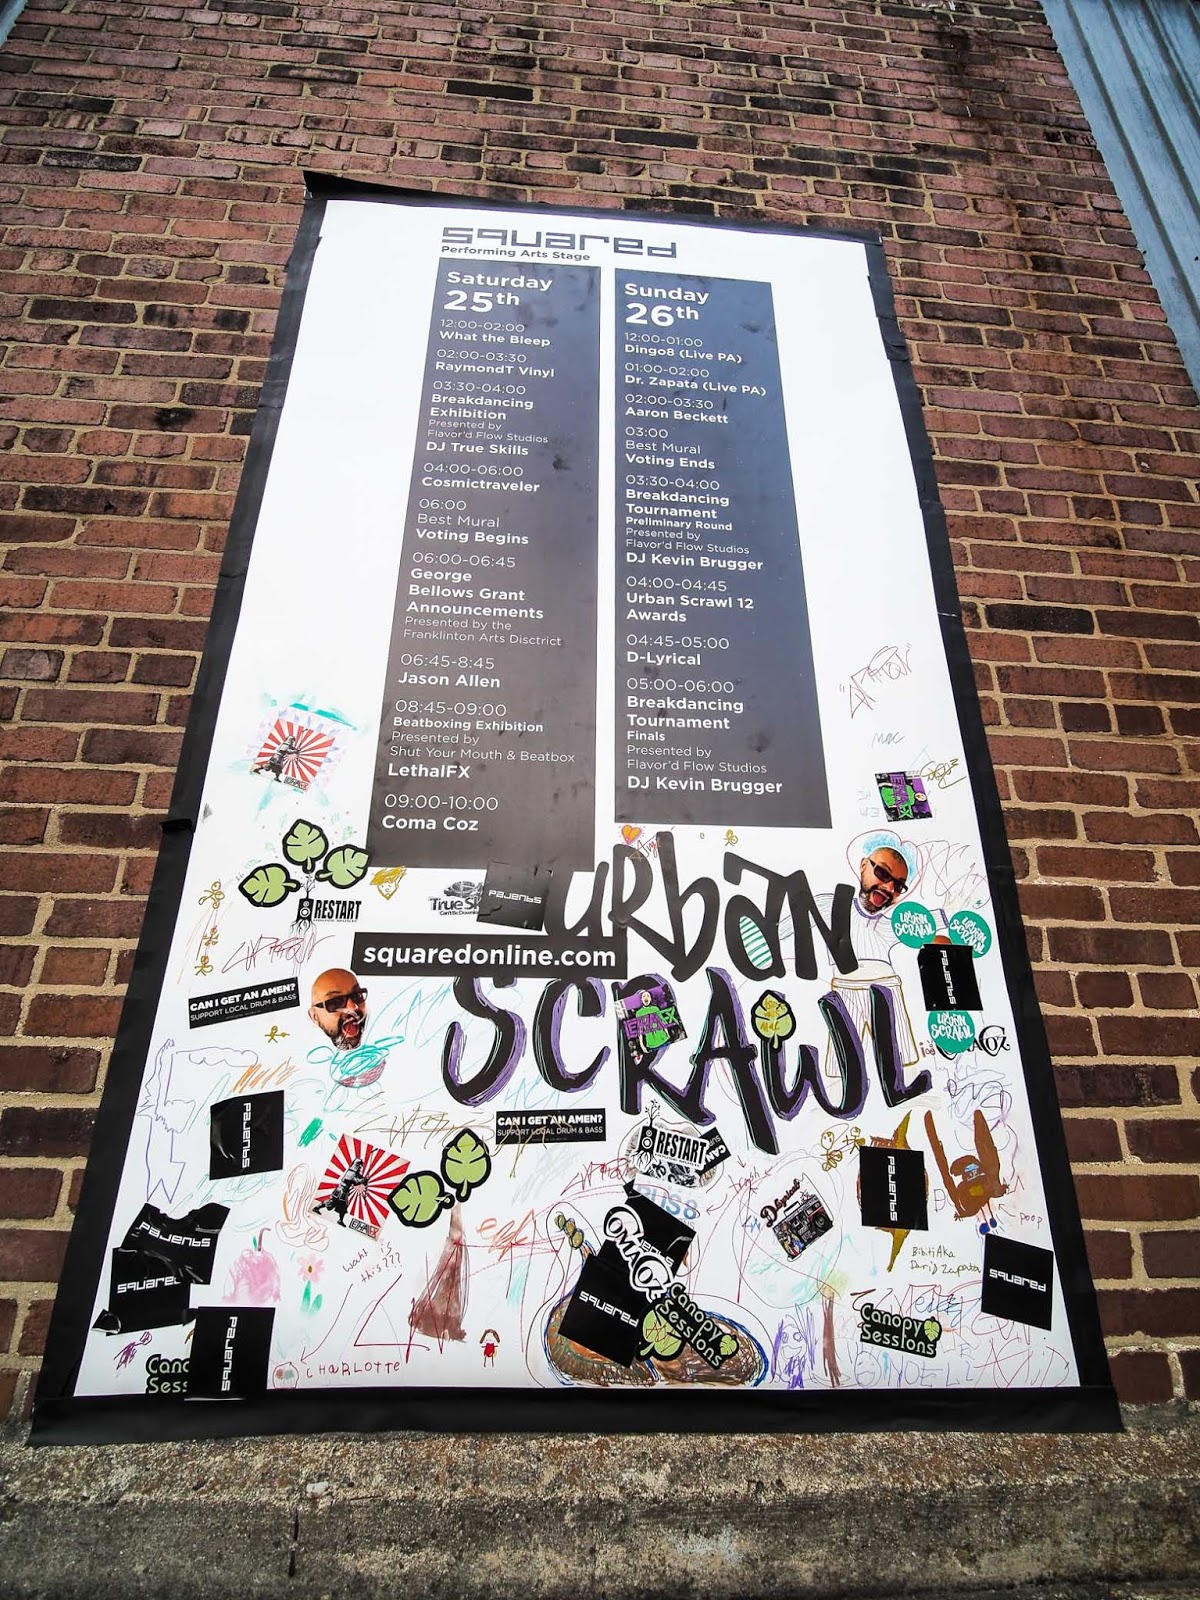 squared
Performing Arts Stage
Saturday
25th
12:00-02:00
What the Bleep
02:00-03:30
RaymondT Vinyl
03:30-04:00
Breakdancing
Exhibition
Presented by
Flavor'd Flow Studios
DJ True Skills
04:00-06:00
Cosmictraveler
06:00
Best Mural
Voting Begins
06:00-06:45
George
Bellows Grant
Announcements
Presented by the
Franklinton Arts Disctrict
06:45-8:45
Jason Allen
08:45-09:00
Beatboxing Exhibition
Presented by
Shut Your Mouth & Beatbox
LethalFX
09:00-10:00
Coma Coz
Sunday
26th
12:00-01:00
Dingo8 (Live PA)
01:00-02:00
Dr. Zapata (Live PA)
02:00-03:30
Aaron Beckett
03:00
Best Mural
Voting Ends
03:30-04:00
Breakdancing
Tournament
Preliminary Round
Presented by
Flavor'd Flow Studios
DJ Kevin Brugger
04:00-04:45
Urban Scrawl 12
Awards
04:45-05:00
D-Lyrical
05:00-06:00
Breakdancing
Tournament
Finals
Presented by
Flavor'd Flow Studios
DJ Kevin Brugger
mac
RESTART
True Sk
squared
urban
SCRAWL
squaredonline.com
URBAN
SCRAWL
squared
URBAN
SCRAWL
CAN I GET AN AMEN?
SUPPORT LOCAL DRUM & BASS
ComaCoz
squared
CAN I GET AN AMEN?
SUPPORT LOCAL DRUM & BASS
RESTART
squared
D-Lyrical
poop
squared
squared
what is
this???
COMACOZ
squared
Bibiti Aka
David Zapata
squared
Canopy
Sessions
Canopy
Sessions
squared
CHaRLOTTe
NOELL
Cano
Sess